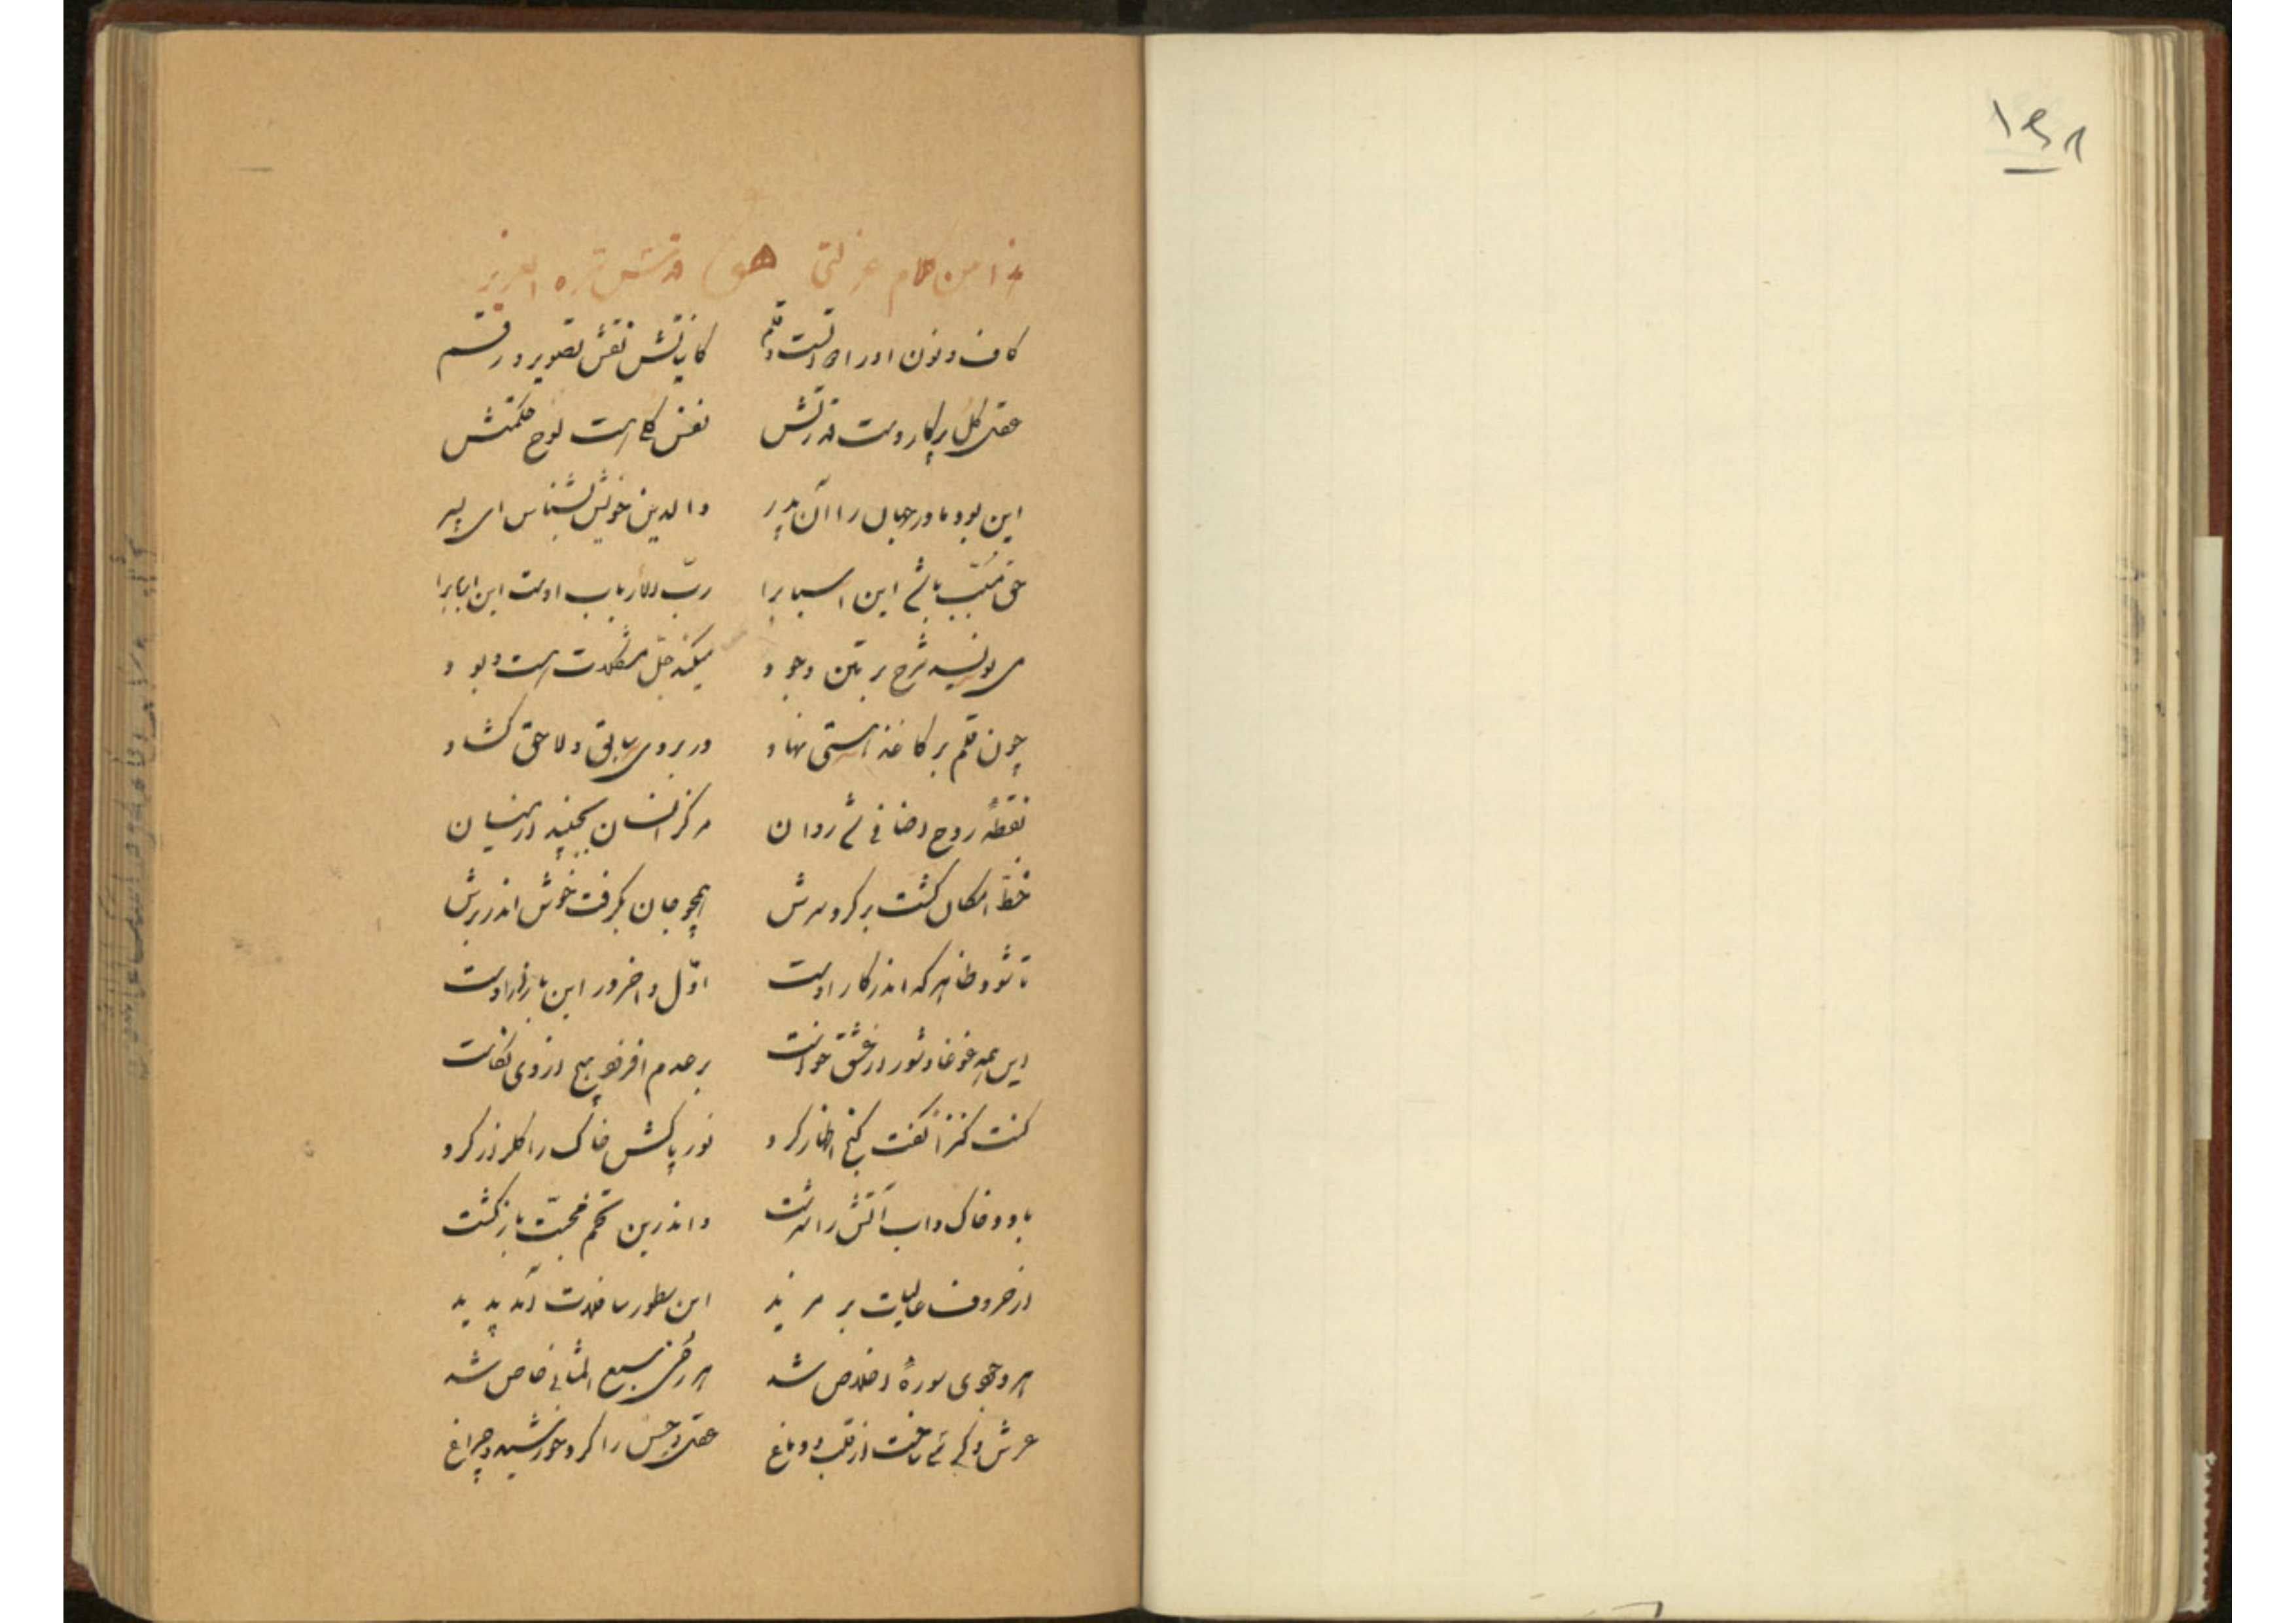 ۱۴۸
هذا من کلام عزلتی هو قدس سره العزیز
کاف و نون او را دوات و قلم کایناتش نقش تصویر و رقم
عقل کل پرکار دست قدرتش نفس کل است لوح حکمتش
این بود مادر جهان را آن پدر والدین خویش بشناس ای پسر
حق مسبب باشد این اسباب را رب الارباب اوست این ارباب را
می نویسد شرح بر متن وجود میکند حل مشکلات هست و بود
چون قلم بر کاغذ هستی نهاد در بروی سابق و لاحق گشاد
نقطهٔ روح اضافی شد روان مرکز انسان در میان
خط امکان گشت بر گرد سرش همچو جان بگرفت خوش اندر برش
تا شود ظاهر که اندر کار اوست اول و آخر در این بازار اوست
این همه غوغا و شور از عشق خواست بر عدم افزود هیچ از وی نکاست
کنت کنزا گفت گنج اظهار کرد نور پاکش خاک را گلزار کرد
باد و خاک و آب آتش را سرشت واندرین تخم محبت باز کشت
از حروف عالیات بر مزید این سطور سافلات آمد پدید
هر وجودی سورهٔ اخلاص شد هر سبع المثانی خاص شد
عرش و کرسی ساخت از قلب و دماغ عقل و حس را کرد خورشید و چراغ